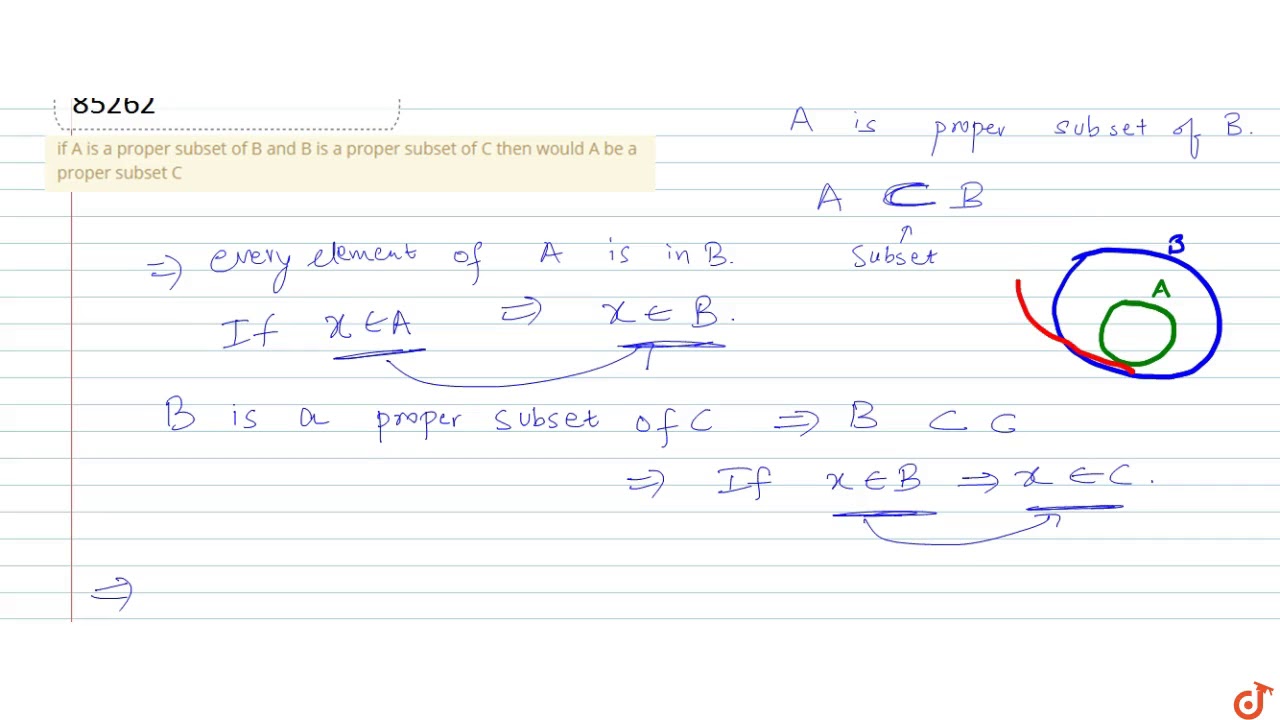 85262
if A is a proper subset of B and B is a proper subset of C then would A be a
proper subset C
A is proper subset of B.
A ⊂ B
↑
Subset
B
A
⇒ every element of A is in B.
If x ∈ A ⇒ x ∈ B.
B is a proper subset of C ⇒ B ⊂ C
⇒ If x ∈ B ⇒ x ∈ C.
⇒